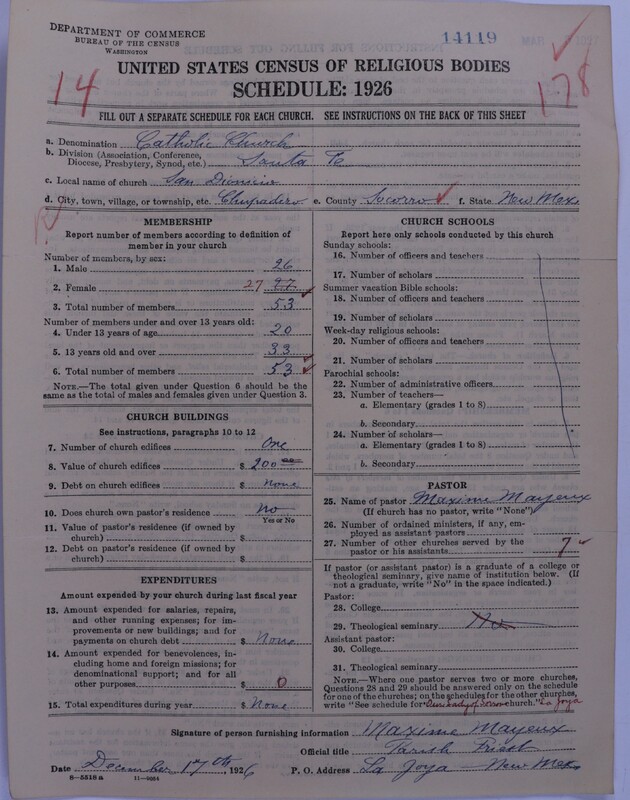 DEPARTMENT OF COMMERCE
BUREAU OF THE CENSUS
WASHINGTON
14119
14
178
UNITED STATES CENSUS OF RELIGIOUS BODIES
SCHEDULE: 1926
FILL OUT A SEPARATE SCHEDULE FOR EACH CHURCH. SEE INSTRUCTIONS ON THE BACK OF THIS SHEET
a. Denomination Catholic Church
b. Division (Association, Conference, Diocese, Presbytery, Synod, etc.) Santa Fe
c. Local name of church San Dionicio
d. City, town, village, or township, etc. Chupadero e. County Socorro f. State New Mex
MEMBERSHIP
Report number of members according to definition of member in your church
Number of members, by sex:
1. Male 26
2. Female 27 27
3. Total number of members 53
Number of members under and over 13 years old:
4. Under 13 years of age 20
5. 13 years old and over 33
6. Total number of members 53
NOTE.—The total given under Question 6 should be the same as the total of males and females given under Question 3.
CHURCH BUILDINGS
See instructions, paragraphs 10 to 12
7. Number of church edifices One
8. Value of church edifices $ 200 00
9. Debt on church edifices $ None
10. Does church own pastor's residence? No
Yes or No
11. Value of pastor's residence (if owned by church) $
12. Debt on pastor's residence (if owned by church) $
EXPENDITURES
Amount expended by your church during last fiscal year
13. Amount expended for salaries, repairs, and other running expenses; for improvements or new buildings; and for payments on church debt $ None
14. Amount expended for benevolences, including home and foreign missions; for denominational support; and for all other purposes $ 0
15. Total expenditures during year $ None
CHURCH SCHOOLS
Report here only schools conducted by this church
Sunday schools:
16. Number of officers and teachers
17. Number of scholars
Summer vacation Bible schools:
18. Number of officers and teachers
19. Number of scholars
Week-day religious schools:
20. Number of officers and teachers
21. Number of scholars
Parochial schools:
22. Number of administrative officers
23. Number of teachers—
a. Elementary (grades 1 to 8)
b. Secondary
24. Number of scholars—
a. Elementary (grades 1 to 8)
b. Secondary
PASTOR
25. Name of pastor Maxime Mayeux
(If church has no pastor, write "None")
26. Number of ordained ministers, if any, employed as assistant pastors
27. Number of other churches served by the pastor or his assistants 7
If pastor (or assistant pastor) is a graduate of a college or theological seminary, give name of institution below. (If not a graduate, write "No" in the space indicated.)
Pastor:
28. College
29. Theological seminary No
Assistant pastor:
30. College
31. Theological seminary
NOTE.—Where one pastor serves two or more churches, Questions 28 and 29 should be answered only on the schedule for one of the churches; on the schedules for the other churches, write "See schedule for Our Lady of Sorrow church." La Joya
Signature of person furnishing information Maxime Mayeux
Official title Parish Priest
Date December 17th, 1926 P. O. Address La Joya New Mex
8-5518 a 11-9064